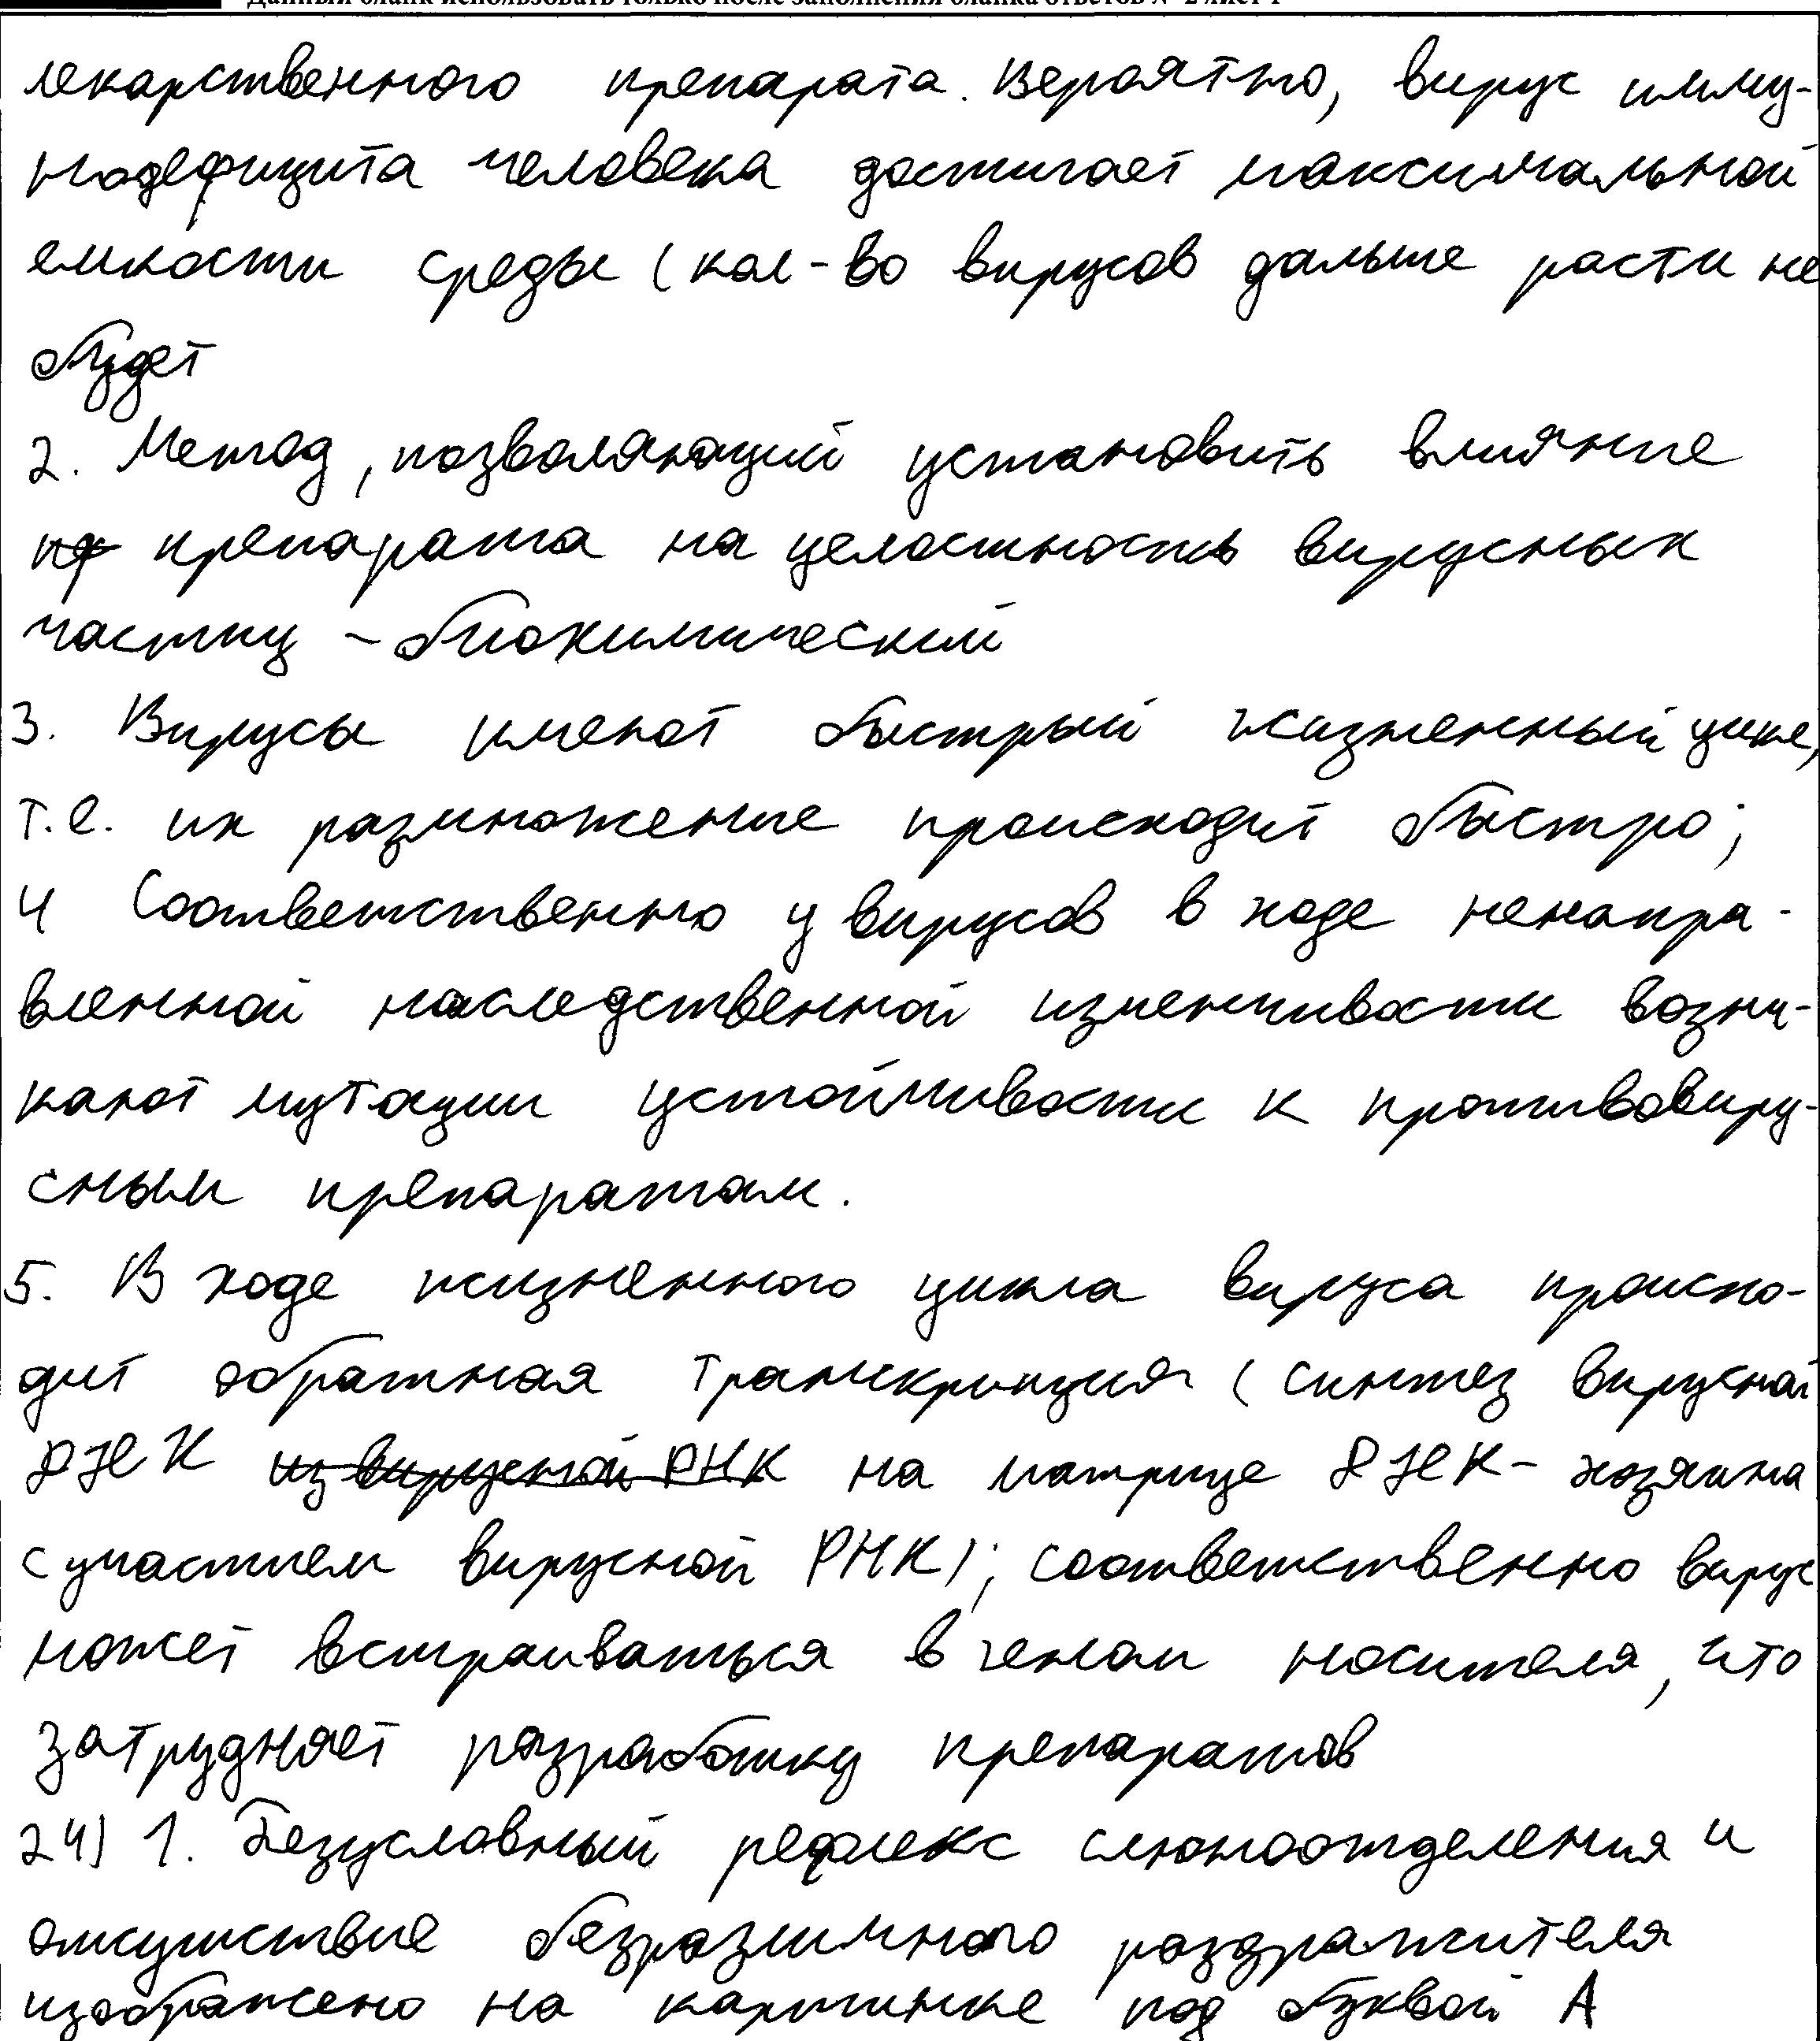 Данный бланк использовать только после заполнения бланка ответов № 2 лист 1
лекарственного препарата. Вероятно, вирус имму-
нодефицита человека достигает максимальной
емкости среды (кол-во вирусов дальше расти не
будет
2. Метод, позволяющий установить влияние
препарата на целостность вирусных
частиц - биохимический
3. Вирусы имеют быстрый жизненный цикл,
т.е. их размножение происходит быстро;
4 Соответственно у вирусов в ходе ненапра-
вленной наследственной изменчивости возни-
кают мутации устойчивости к противовиру-
сным препаратам.
5. В ходе жизненного цикла вируса происхо-
дит обратная транскрипция (синтез вирусной
ДНК из вирусной РНК на матрице ДНК - хозяина
с участием вирусной РНК); соответственно вирус
может встраиваться в геном носителя, что
затрудняет разработку препаратов
24) 1. Безусловный рефлекс слюноотделения и
отсутствие безразличного раздражителя
изображено на картинке под буквой А